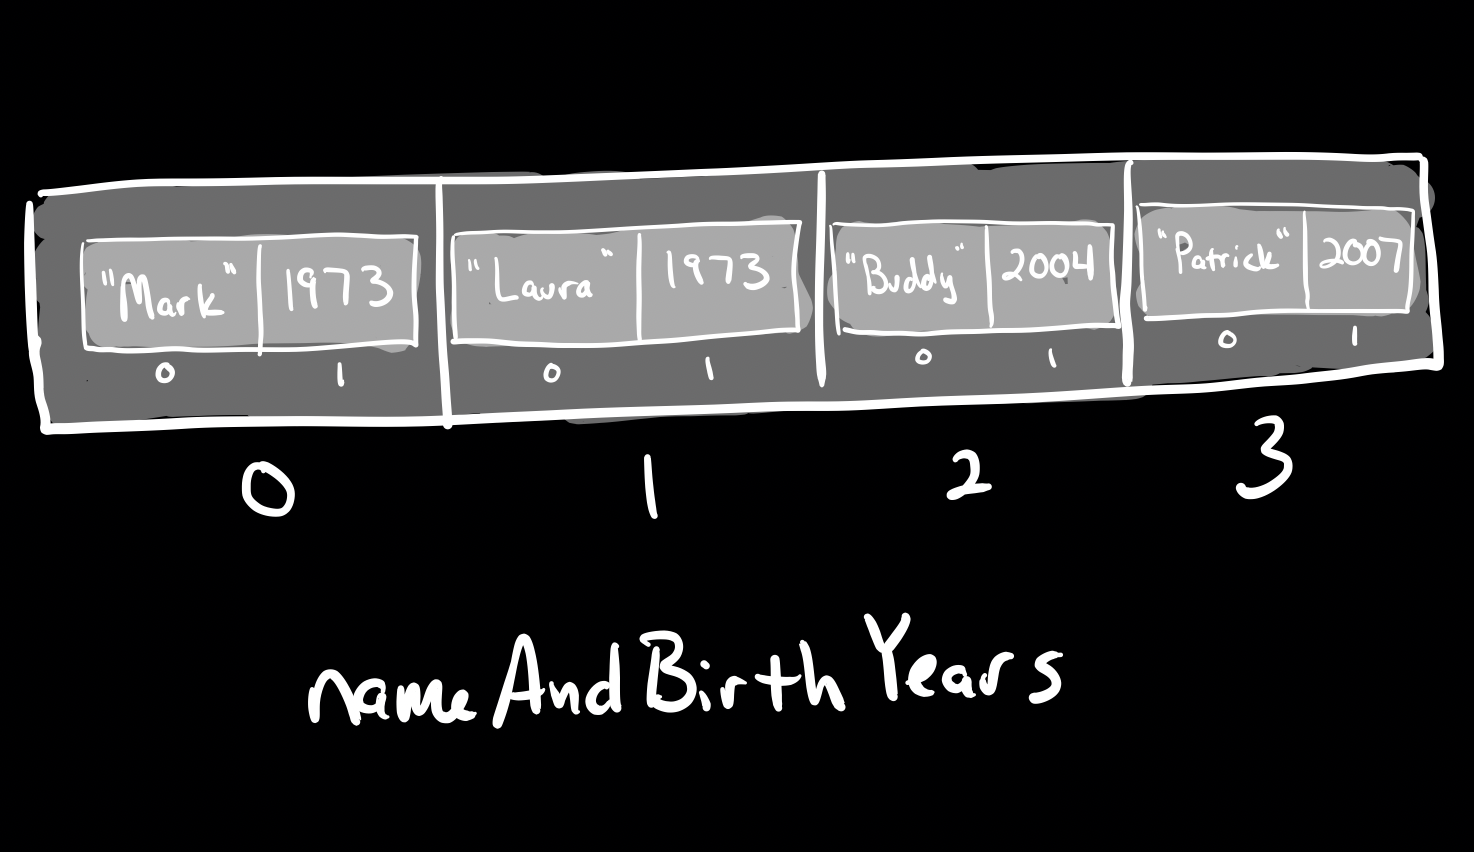 "Mark" 1973 "Laura" 1973 "Buddy" 2004 "Patrick" 2007
0 1 0 1 0 1 0 1
0 1 2 3
nameAndBirthYears